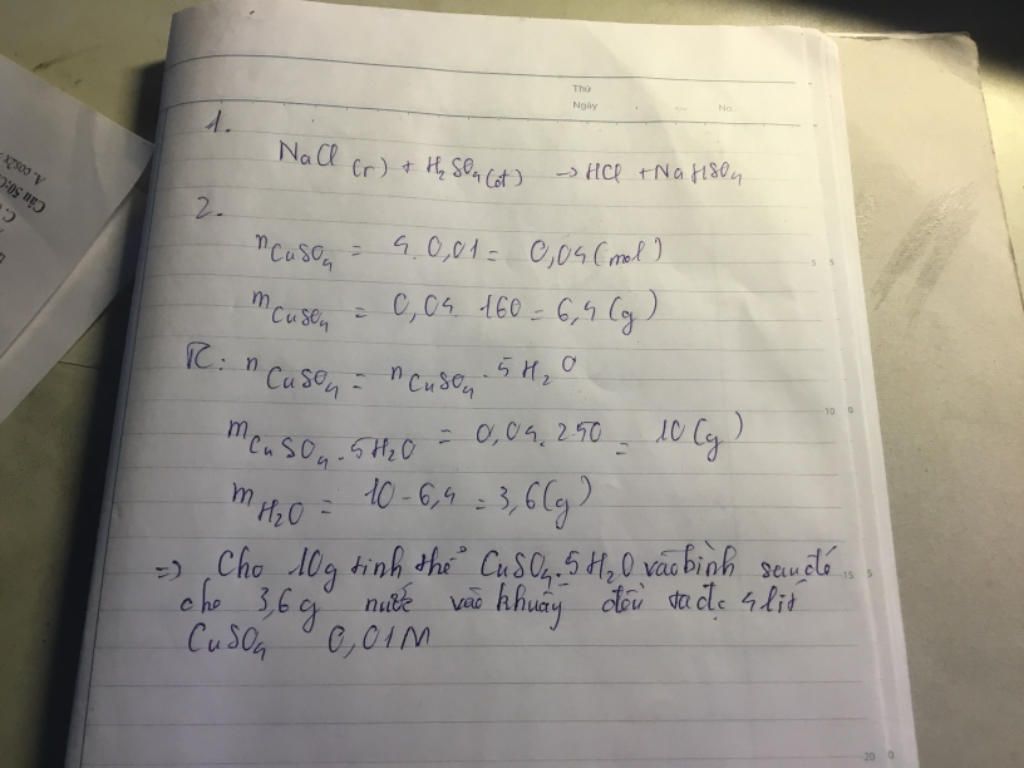 Thứ
Ngày No
1.
NaCl (r) + H₂SO₄(đ,t°) → HCl + NaHSO₄
2.
nCuSO₄ = 4.0,01 = 0,04 (mol)
mCuSO₄ = 0,04.160 = 6,4 (g)
TC: nCuSO₄ = nCuSO₄.5H₂O
mCuSO₄.5H₂O = 0,04.250 = 10 (g)
mH₂O = 10 - 6,4 = 3,6 (g)
=> Cho 10g tinh thể CuSO₄.5H₂O vào bình sau đó
cho 3,6 g nước vào khuấy đều ta đc 4 lít
CuSO₄ 0,01M
5 5
10 0
15 5
20 0
Câu 50: C
A. cos2x